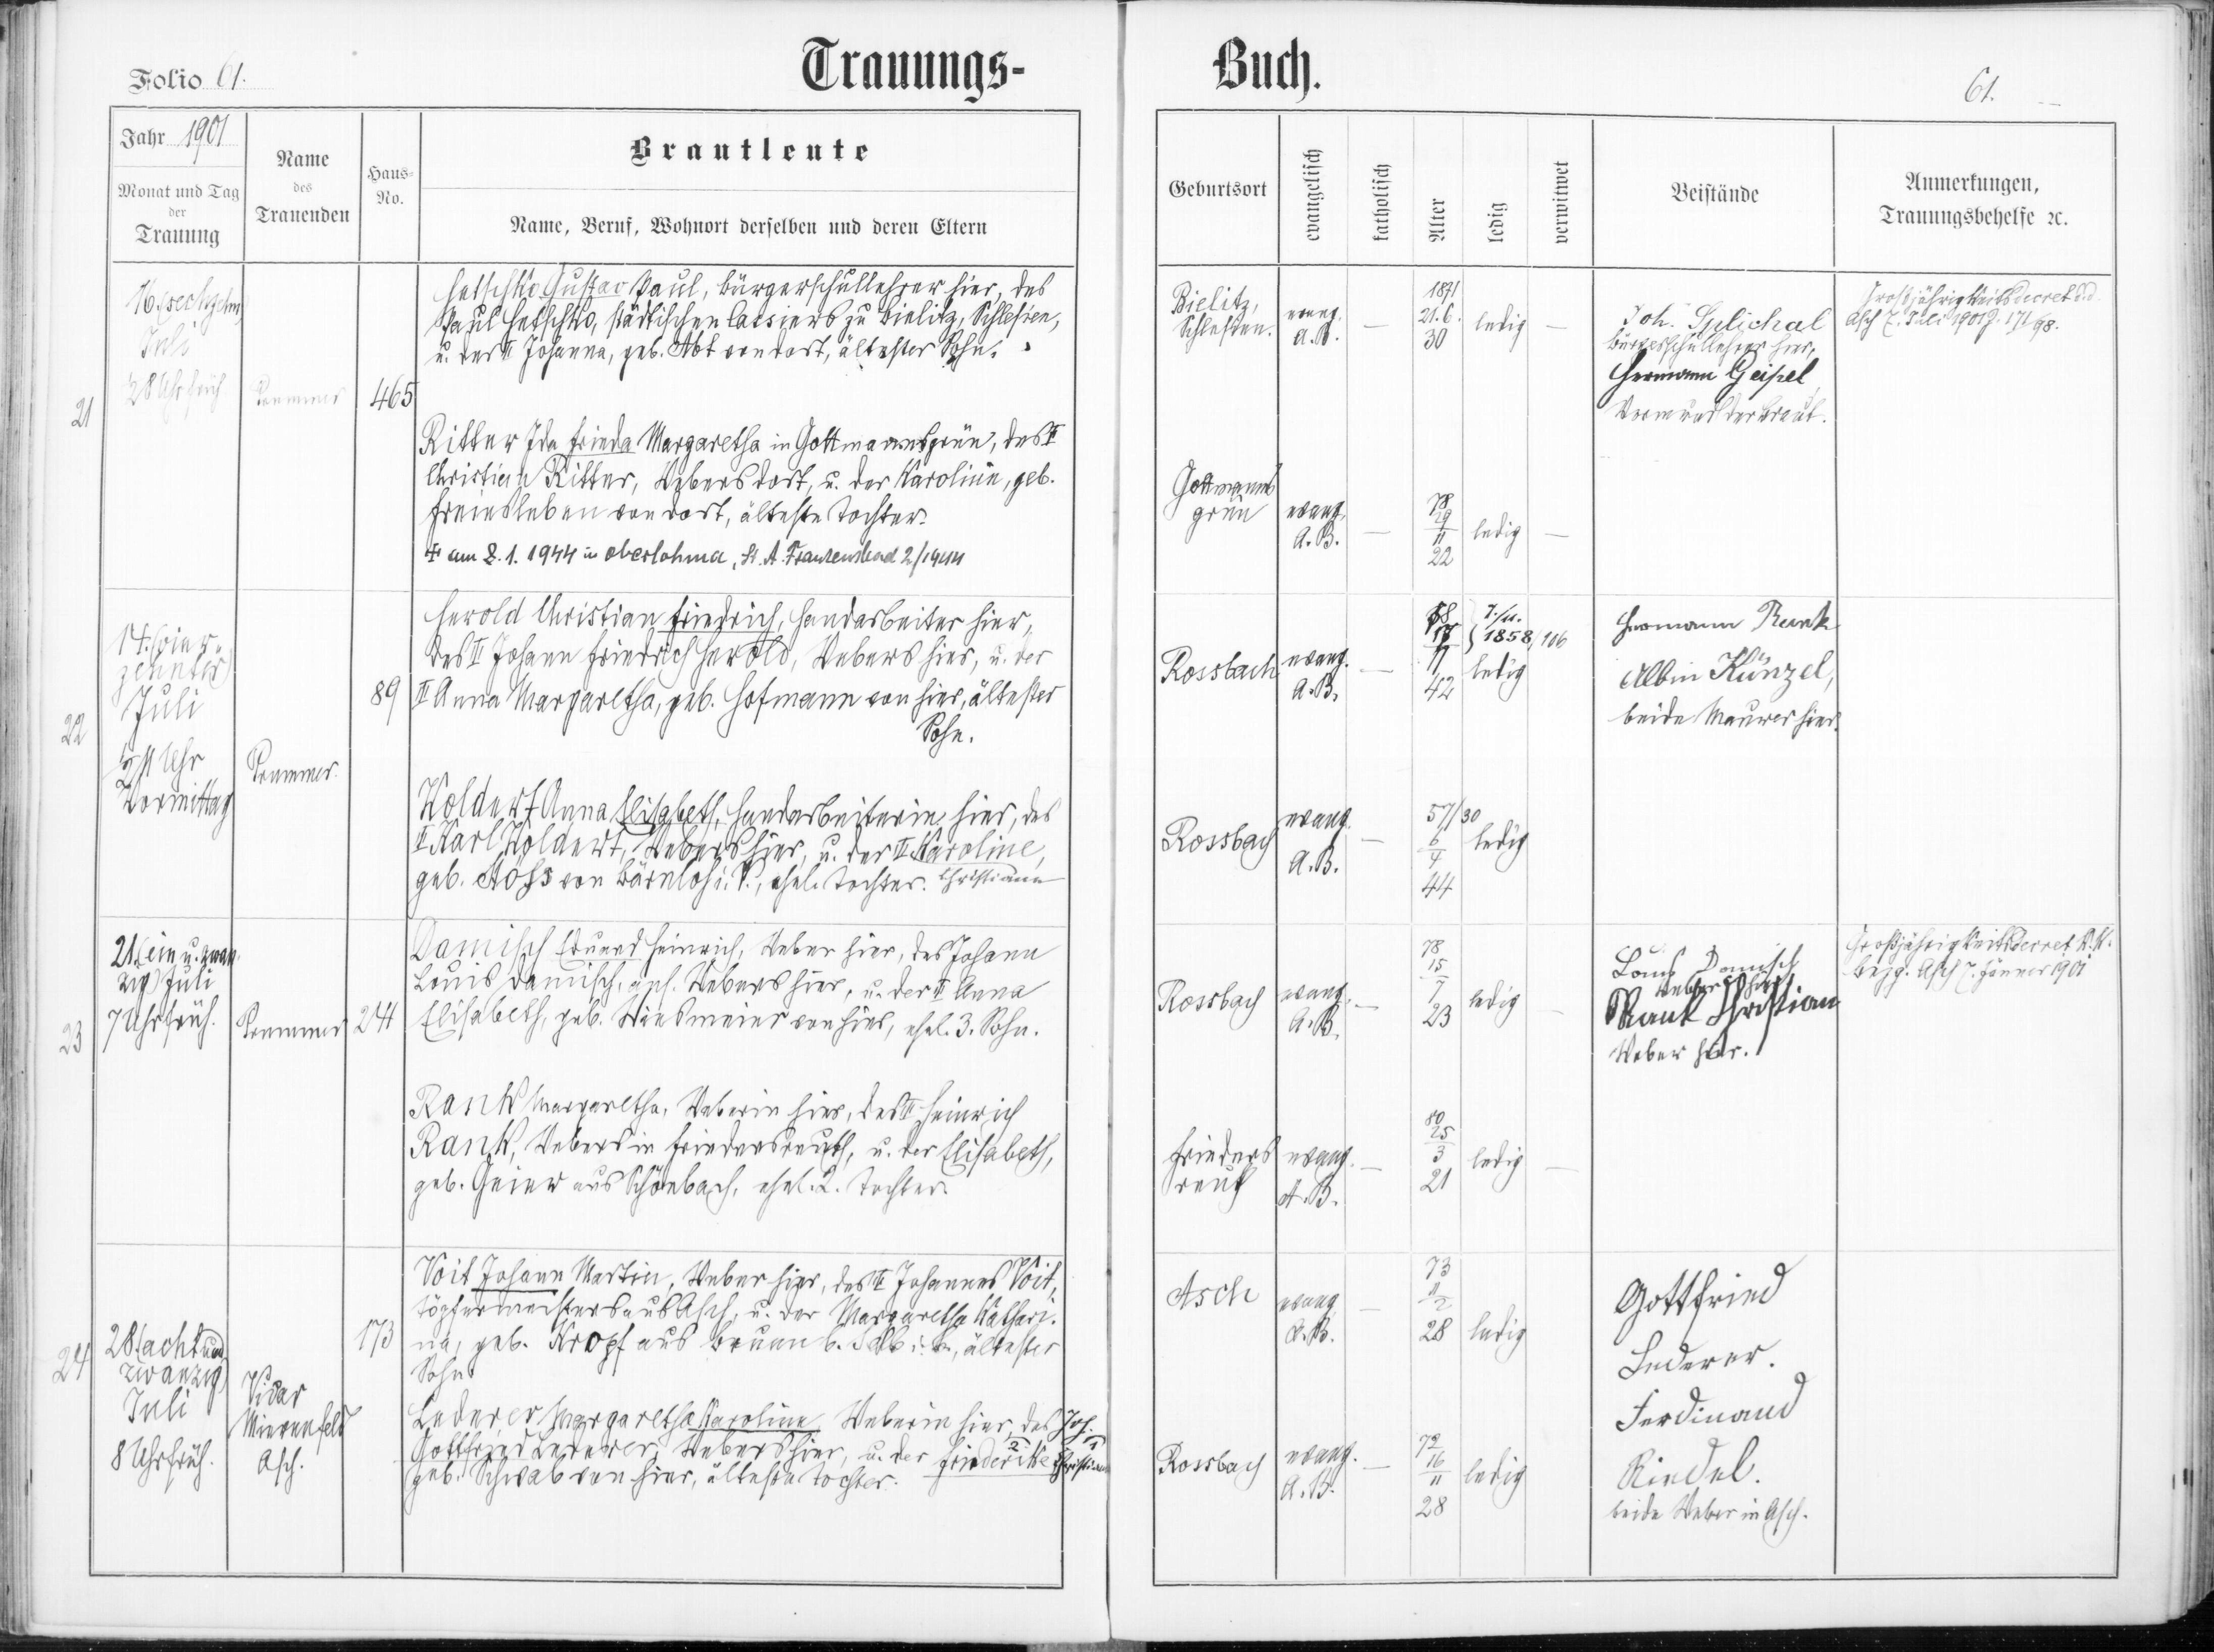 Folio 61.
Trauungs-
Buch.
61.
Jahr 1901
Monat und Tag
der
Trauung
Name
des
Trauenden
Haus-
No.
Brautleute
Name, Beruf, Wohnort derselben und deren Eltern
Geburtsort
evangelisch
katholisch
Alter
ledig
verwitwet
Beistände
Anmerkungen,
Trauungsbehelfe ꝛc.
21
16. (sechzehn)
Juli
½8 Uhr früh
465
Hetschko Gustav Paul, Bürgerschullehrer hier, des
Paul Hetschko, städtischen Cassiers zu Bielitz, Schlesien,
u. der ⚭ Johanna, geb. Abt von dort, ältester Sohn.
Bielitz,
Schlesien.
evang.
A. B.
—
1871
21.6.
30
ledig
—
Joh. Splichal
Bürgerschullehrer hier,
Hermann Geipel
Vormund der Braut.
Großjährigkeitsdecret dd.
Asch 7. Juli 1901 J. 171/98.
Ritter Ida Frieda Margaretha in Gottmannsgrün, des
Christian Ritter, Webers dort, u. der Karoline, geb.
Freiesleben von dort, älteste Tochter.
† am 2. 1. 1944 in Oberlohma, St. A. Franzensbad 2/1944
Gottmanns
grün
evang.
A. B.
—
78
29
11
22
ledig
—
22
14. (vier-
zehnter)
Juli
½11 Uhr
Vormittag
Krummer.
89
Herold Christian Friedrich, Handarbeiter hier,
des Johann Friedrich Herold, Webers hier, u. der
Anna Margaretha, geb. Hofmann von hier, ältester
Sohn.
Rossbach
evang.
A. B.
—
58
17
11
42
1858/106
ledig
Hermann Rank
Albin Künzel,
beide Maurer hier.
Koldert Anna Elisabeth, Handarbeiterin hier, des
Karl Koldert, Webers hier, u. der Karoline,
geb. Höss von Bärnloh i. B., ehel. Tochter. Christiane
Rossbach
evang.
A. B.
—
57/30
6
4
44
ledig
23
21. (ein u. zwan-
zig) Juli
7 Uhr früh.
Krummer
244
Damisch Eduard Heinrich, Weber hier, des Johann
Louis Damisch, ans. Webers hier, u. der Anna
Elisabeth, geb. Wiesmeier von hier, ehel. 3. Sohn.
Rossbach
evang.
A. B.
—
78
15
7
23
ledig
—
Louis Damisch
Weber hier
Rank Christian
Weber hier.
Großjährigkeitsdecret K. K.
Bezg. Asch 7. Jänner 1901
Rank Margaretha, Weberin hier, des Heinrich
Rank, Webers in Friedersreuth, u. der Elisabeth,
geb. Geier aus Schönbach, ehel. 2. Tochter.
Frieders
reuth
evang.
A. B.
—
80
25
3
21
ledig
—
24
28. (achtund
zwanzig)
Juli
8 Uhr früh.
Vikar
Mierenfeld
Asch.
173
Voit Johann Martin, Weber hier, des Johannes Voit,
Töpfermeisters aus Asch, u. der Margaretha Kathari-
na, geb. Kropf aus Brunn b. Selb i. B., ältester
Sohn.
Asch
evang.
A. B.
—
73
11
2
28
ledig
Gottfried
Lederer.
Ferdinand
Riedel.
beide Weber in Asch.
Lederer Margaretha Karoline Weberin hier, des Joh.
Gottfried Lederer, Webers hier, u. der Friederike Christiane
geb. Schwab von hier, älteste Tochter.
Rossbach
evang.
A. B.
—
72
16
11
28
ledig